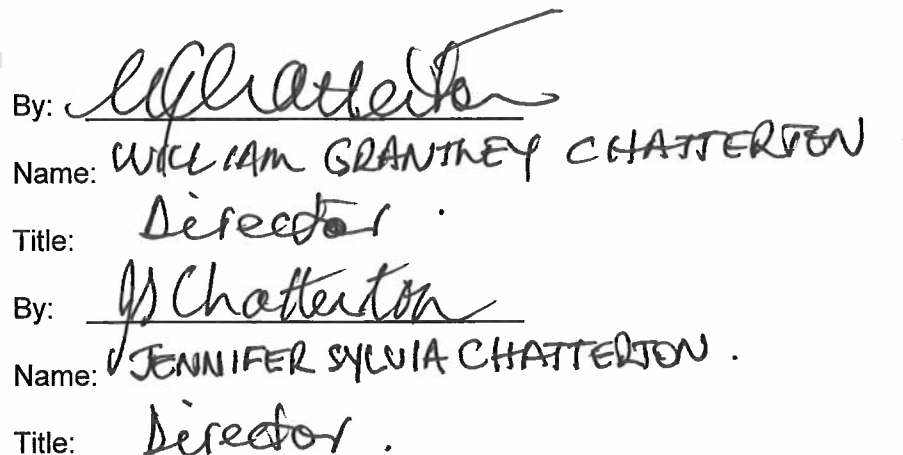 By: WGChatterton
Name: WILLIAM GRANTLEY CHATTERTON
Title: Director.
By: JS Chatterton
Name: JENNIFER SYLVIA CHATTERTON.
Title: Director.